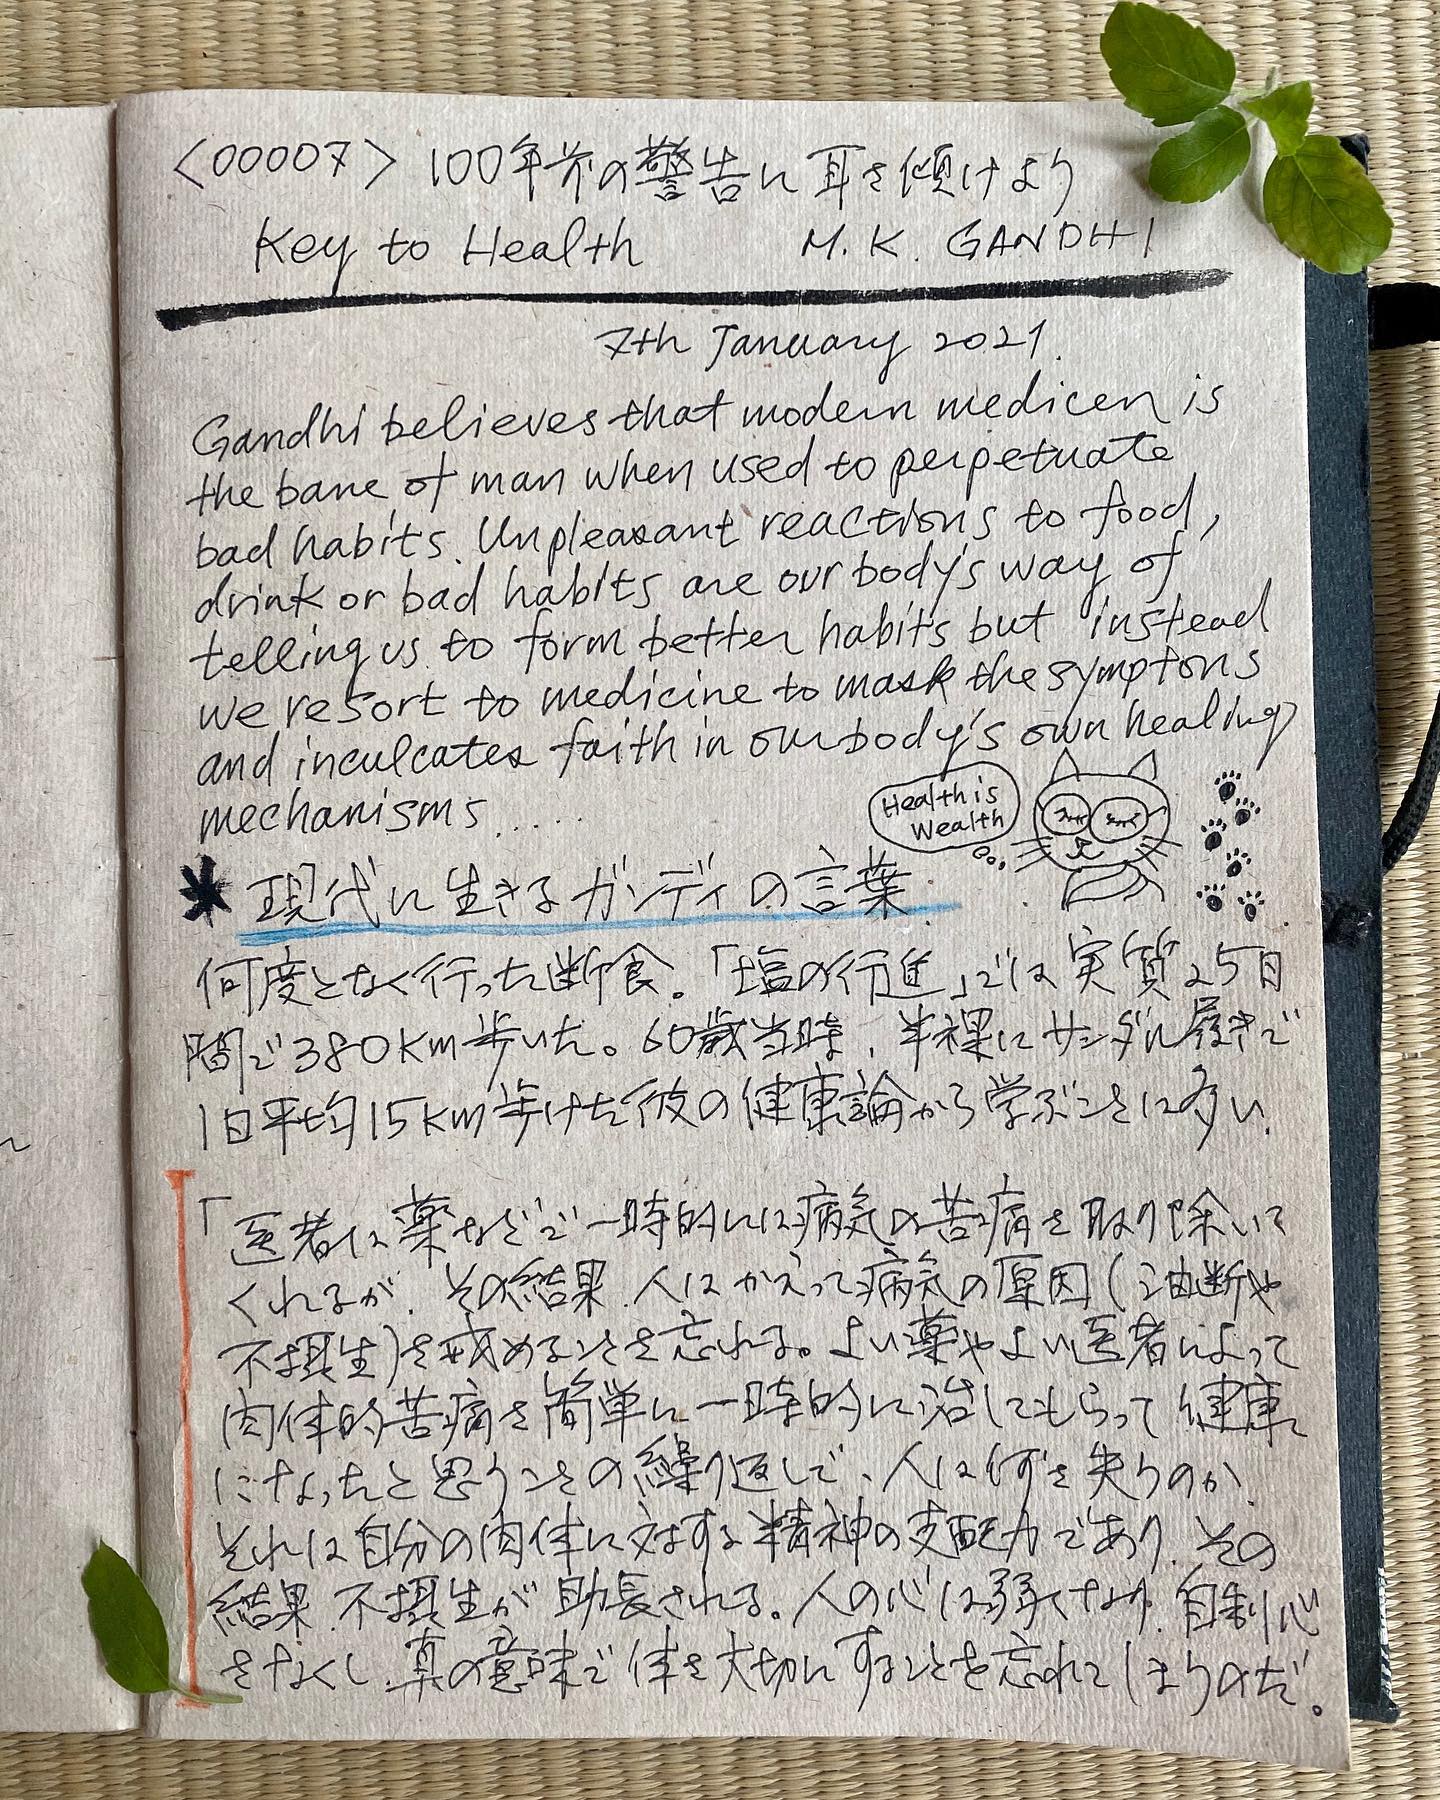 <00007> 100年前の警告に耳を傾けよう
Key to Health M. K. GANDHI
7th January 2021.
Gandhi believes that modern medicen is
the bane of man when used to perpetuate
bad habits. Unpleasant reactions to food,
drink or bad habits are our body's way of
telling us to form better habits but instead
we resort to medicine to mask the symptons
and inculcates faith in our body's own healing
mechanisms.....
Health is
Wealth
* 現代に生きるガンディの言葉
何度となく行った断食。「塩の行進」では実質25日
間で380km歩いた。60歳当時、半裸にサンダル履きで
1日平均15km歩けた彼の健康論から学ぶことは多い.
「医者は薬などで一時的には病気の苦痛を取り除いて
くれるが、その結果、人はかえって病気の原因(油断や
不摂生)を戒めることを忘れる。よい薬やよい医者によって
肉体的苦痛を簡単に一時的に治してもらって健康
になったと思うことの繰り返しで、人は何を失うのか、
それは自分の肉体に対する精神の支配力であり、その
結果、不摂生が助長される。人の心は弱くなり、自制心
をなくし、真の意味で体を大切にすることを忘れてしまうのだ。